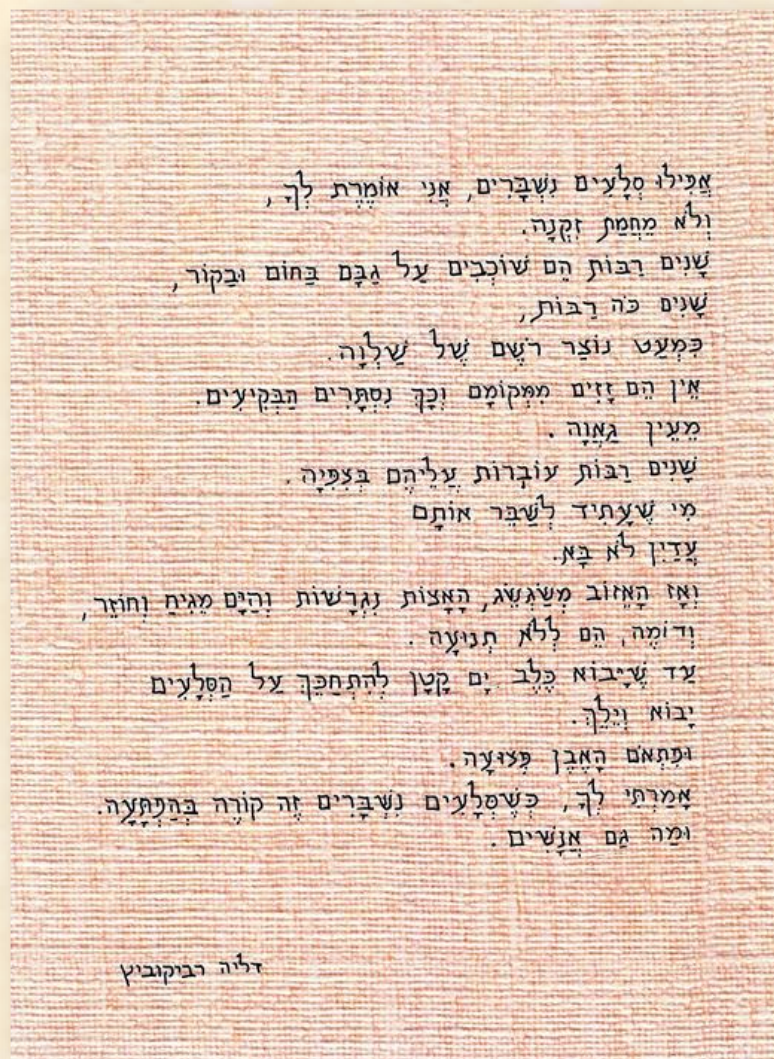 אֲפִילוּ סְלָעִים נִשְׁבָּרִים, אֲנִי אוֹמֶרֶת לְךָ,
וְלֹא מֵחֲמַת זִקְנָה.
שָׁנִים רַבּוֹת הֵם שׁוֹכְבִים עַל גַּבָּם בַּחוֹם וּבַקּוֹר,
שָׁנִים כֹּה רַבּוֹת,
כִּמְעַט נוֹצַר רֹשֶׁם שֶׁל שַׁלְוָה.
אֵין הֵם זָזִים מִמְּקוֹמָם וְכָךְ נִסְתָּרִים הַבְּקִיעִים.
מֵעֵין גַּאֲוָה.
שָׁנִים רַבּוֹת עוֹבְרוֹת עֲלֵיהֶם בְּצִפִּיָּה.
מִי שֶׁעָתִיד לְשַׁבֵּר אוֹתָם
עֲדַיִן לֹא בָּא.
וְאָז הָאֵזוֹב מְשַׂגְשֵׂג, הָאָצוֹת נִגְרָשׁוֹת וְהַיָּם מֵגִיחַ וְחוֹזֵר,
וְדוֹמֶה, הֵם לְלֹא תְּנוּעָה.
עַד שֶׁיָּבוֹא כֶּלֶב יָם קָטָן לְהִתְחַכֵּךְ עַל הַסְּלָעִים
יָבוֹא וְיֵלֵךְ.
וּפִתְאֹם הָאֶבֶן פְּצוּעָה.
אָמַרְתִּי לְךָ, כְּשֶׁסְּלָעִים נִשְׁבָּרִים זֶה קוֹרֶה בְּהַפְתָּעָה.
וּמַה גַּם אֲנָשִׁים.
דליה רביקוביץ